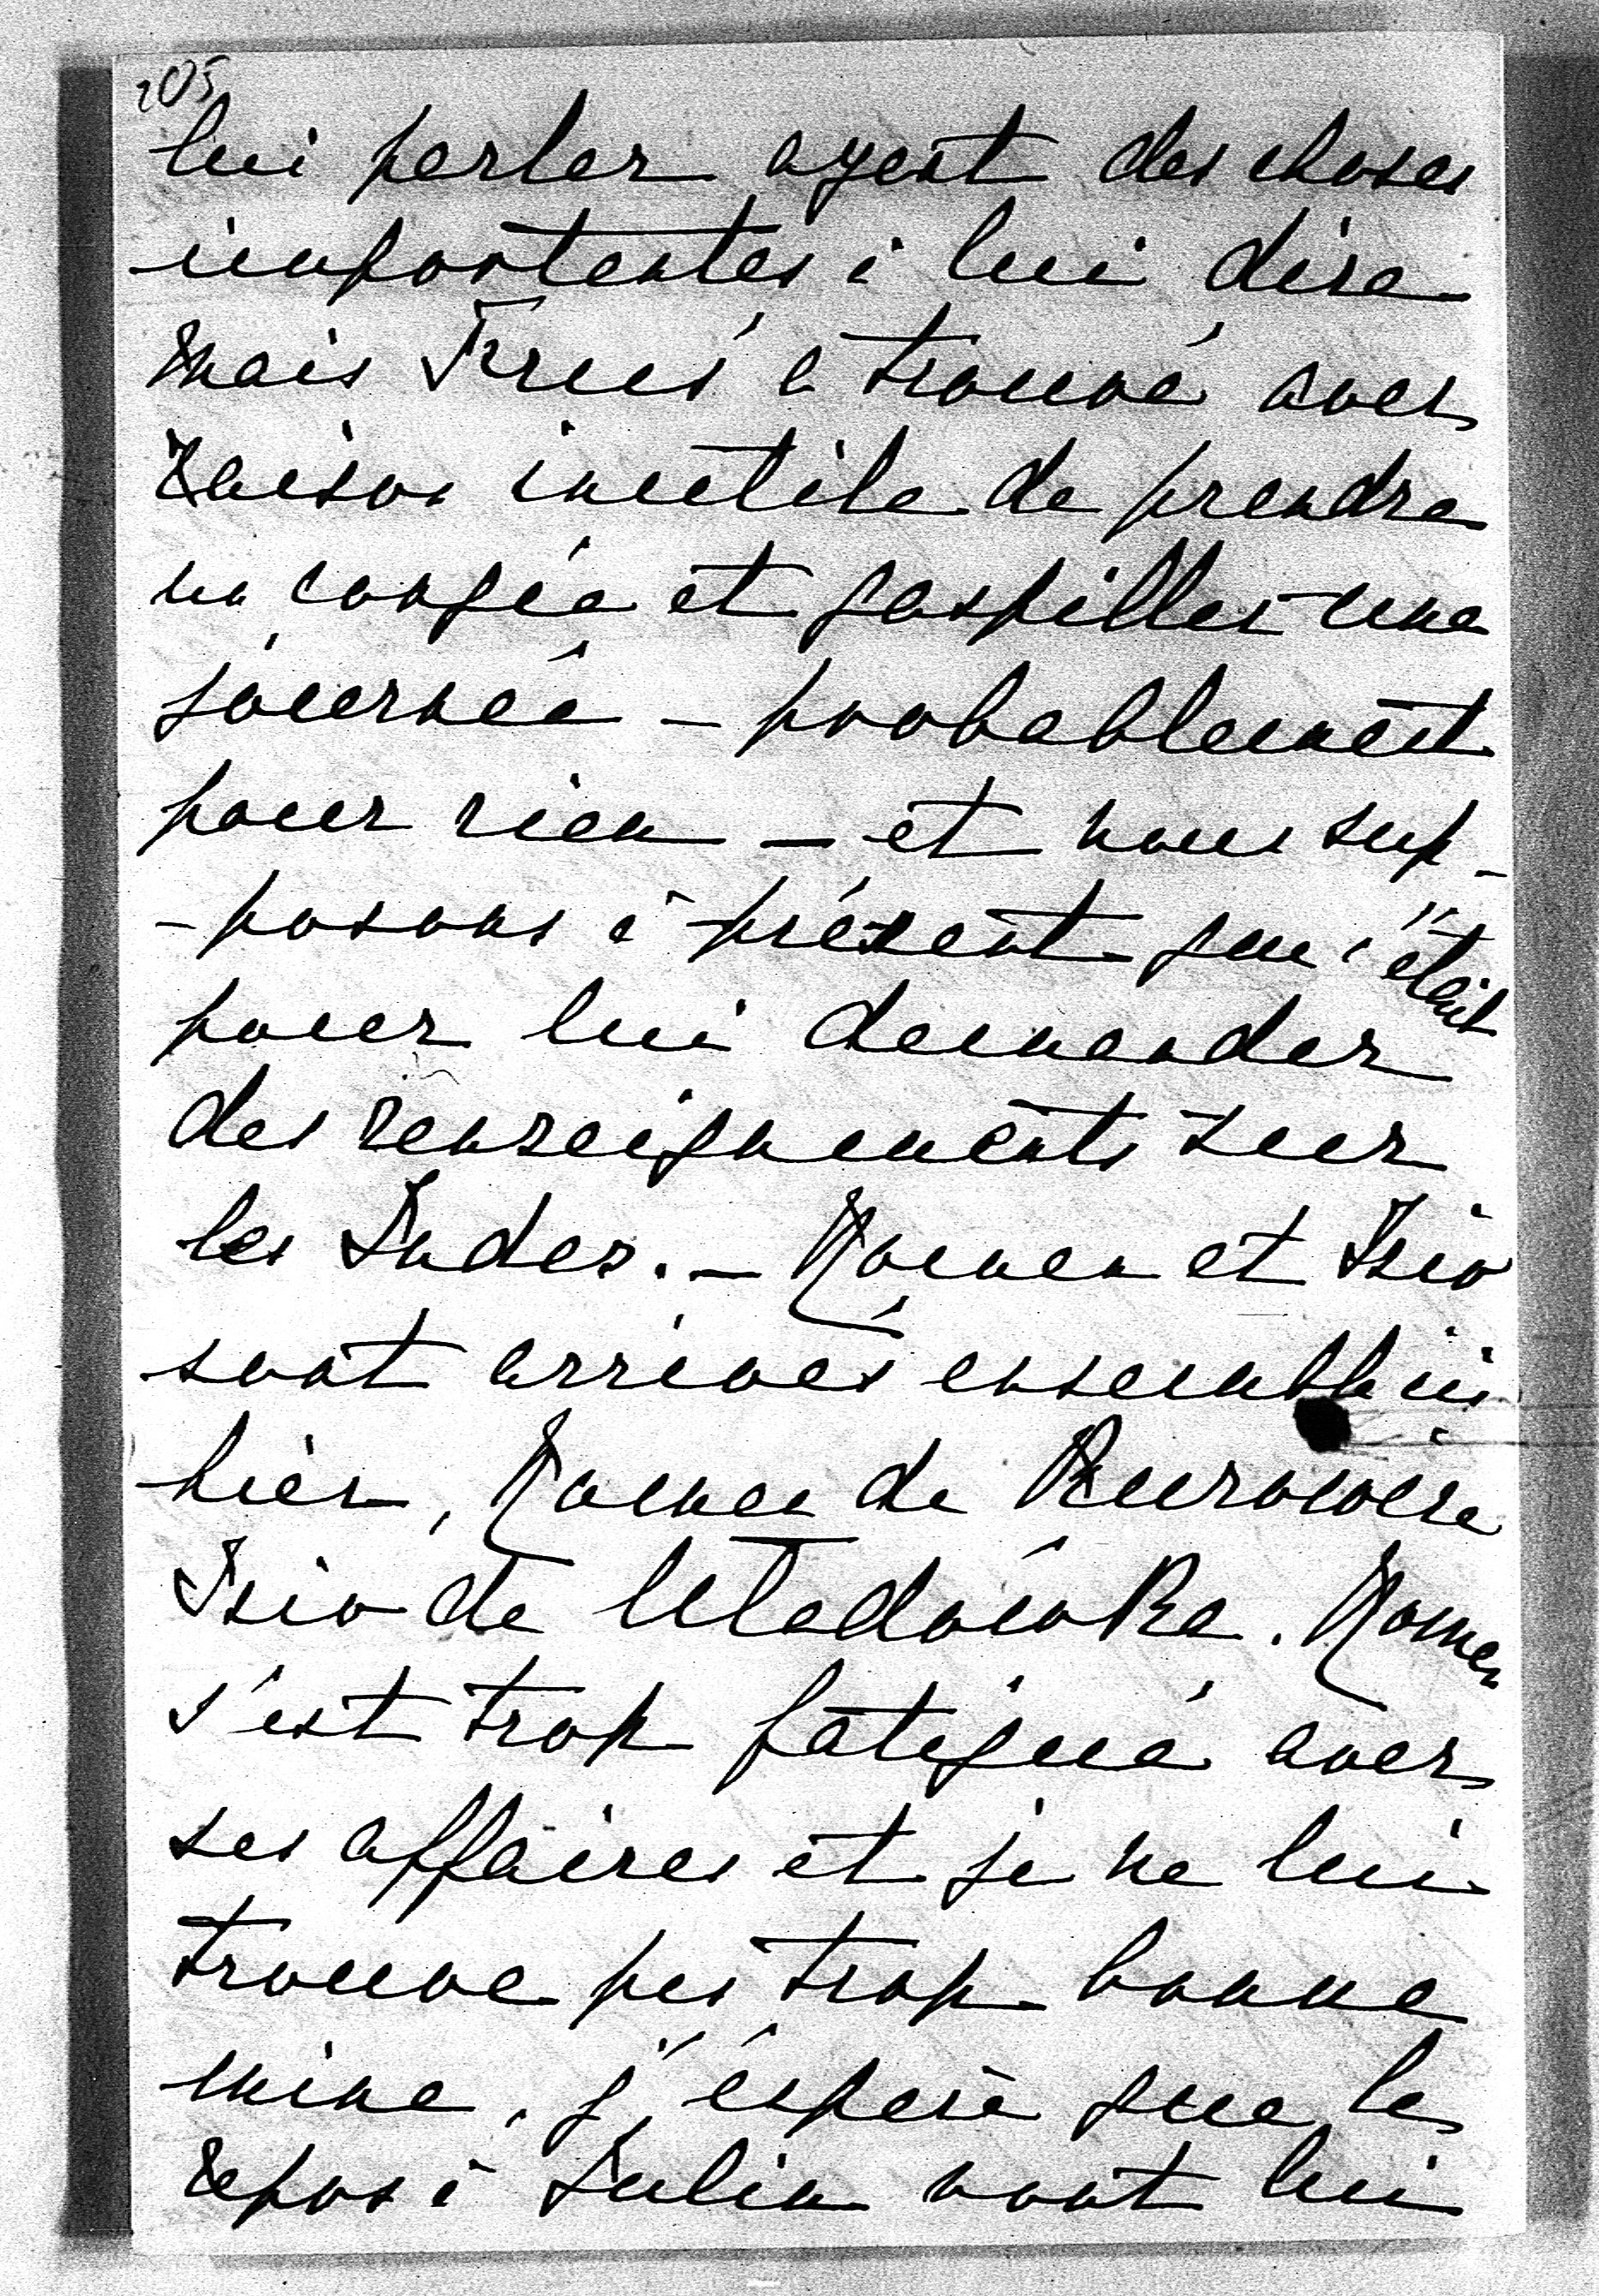 205
lui parler ayant des choses
importantes à lui dire
mais a trouvé avec
raison inutile de prendre
un congée et gaspiller une
journée – probablement
pour rien – et nous sup-
-posons à présent que c'était
pour lui demander
des renseignements sur
les Indes. – Roman et Izio
sont arrivés ensemble ici
hier, Roman de
Izio de Władówka. Roman
s'est trop fatigué avec
ses affaires et je ne lui
trouve pas trop bonne
mine, j'éspère que le
repos à Sulin vont lui